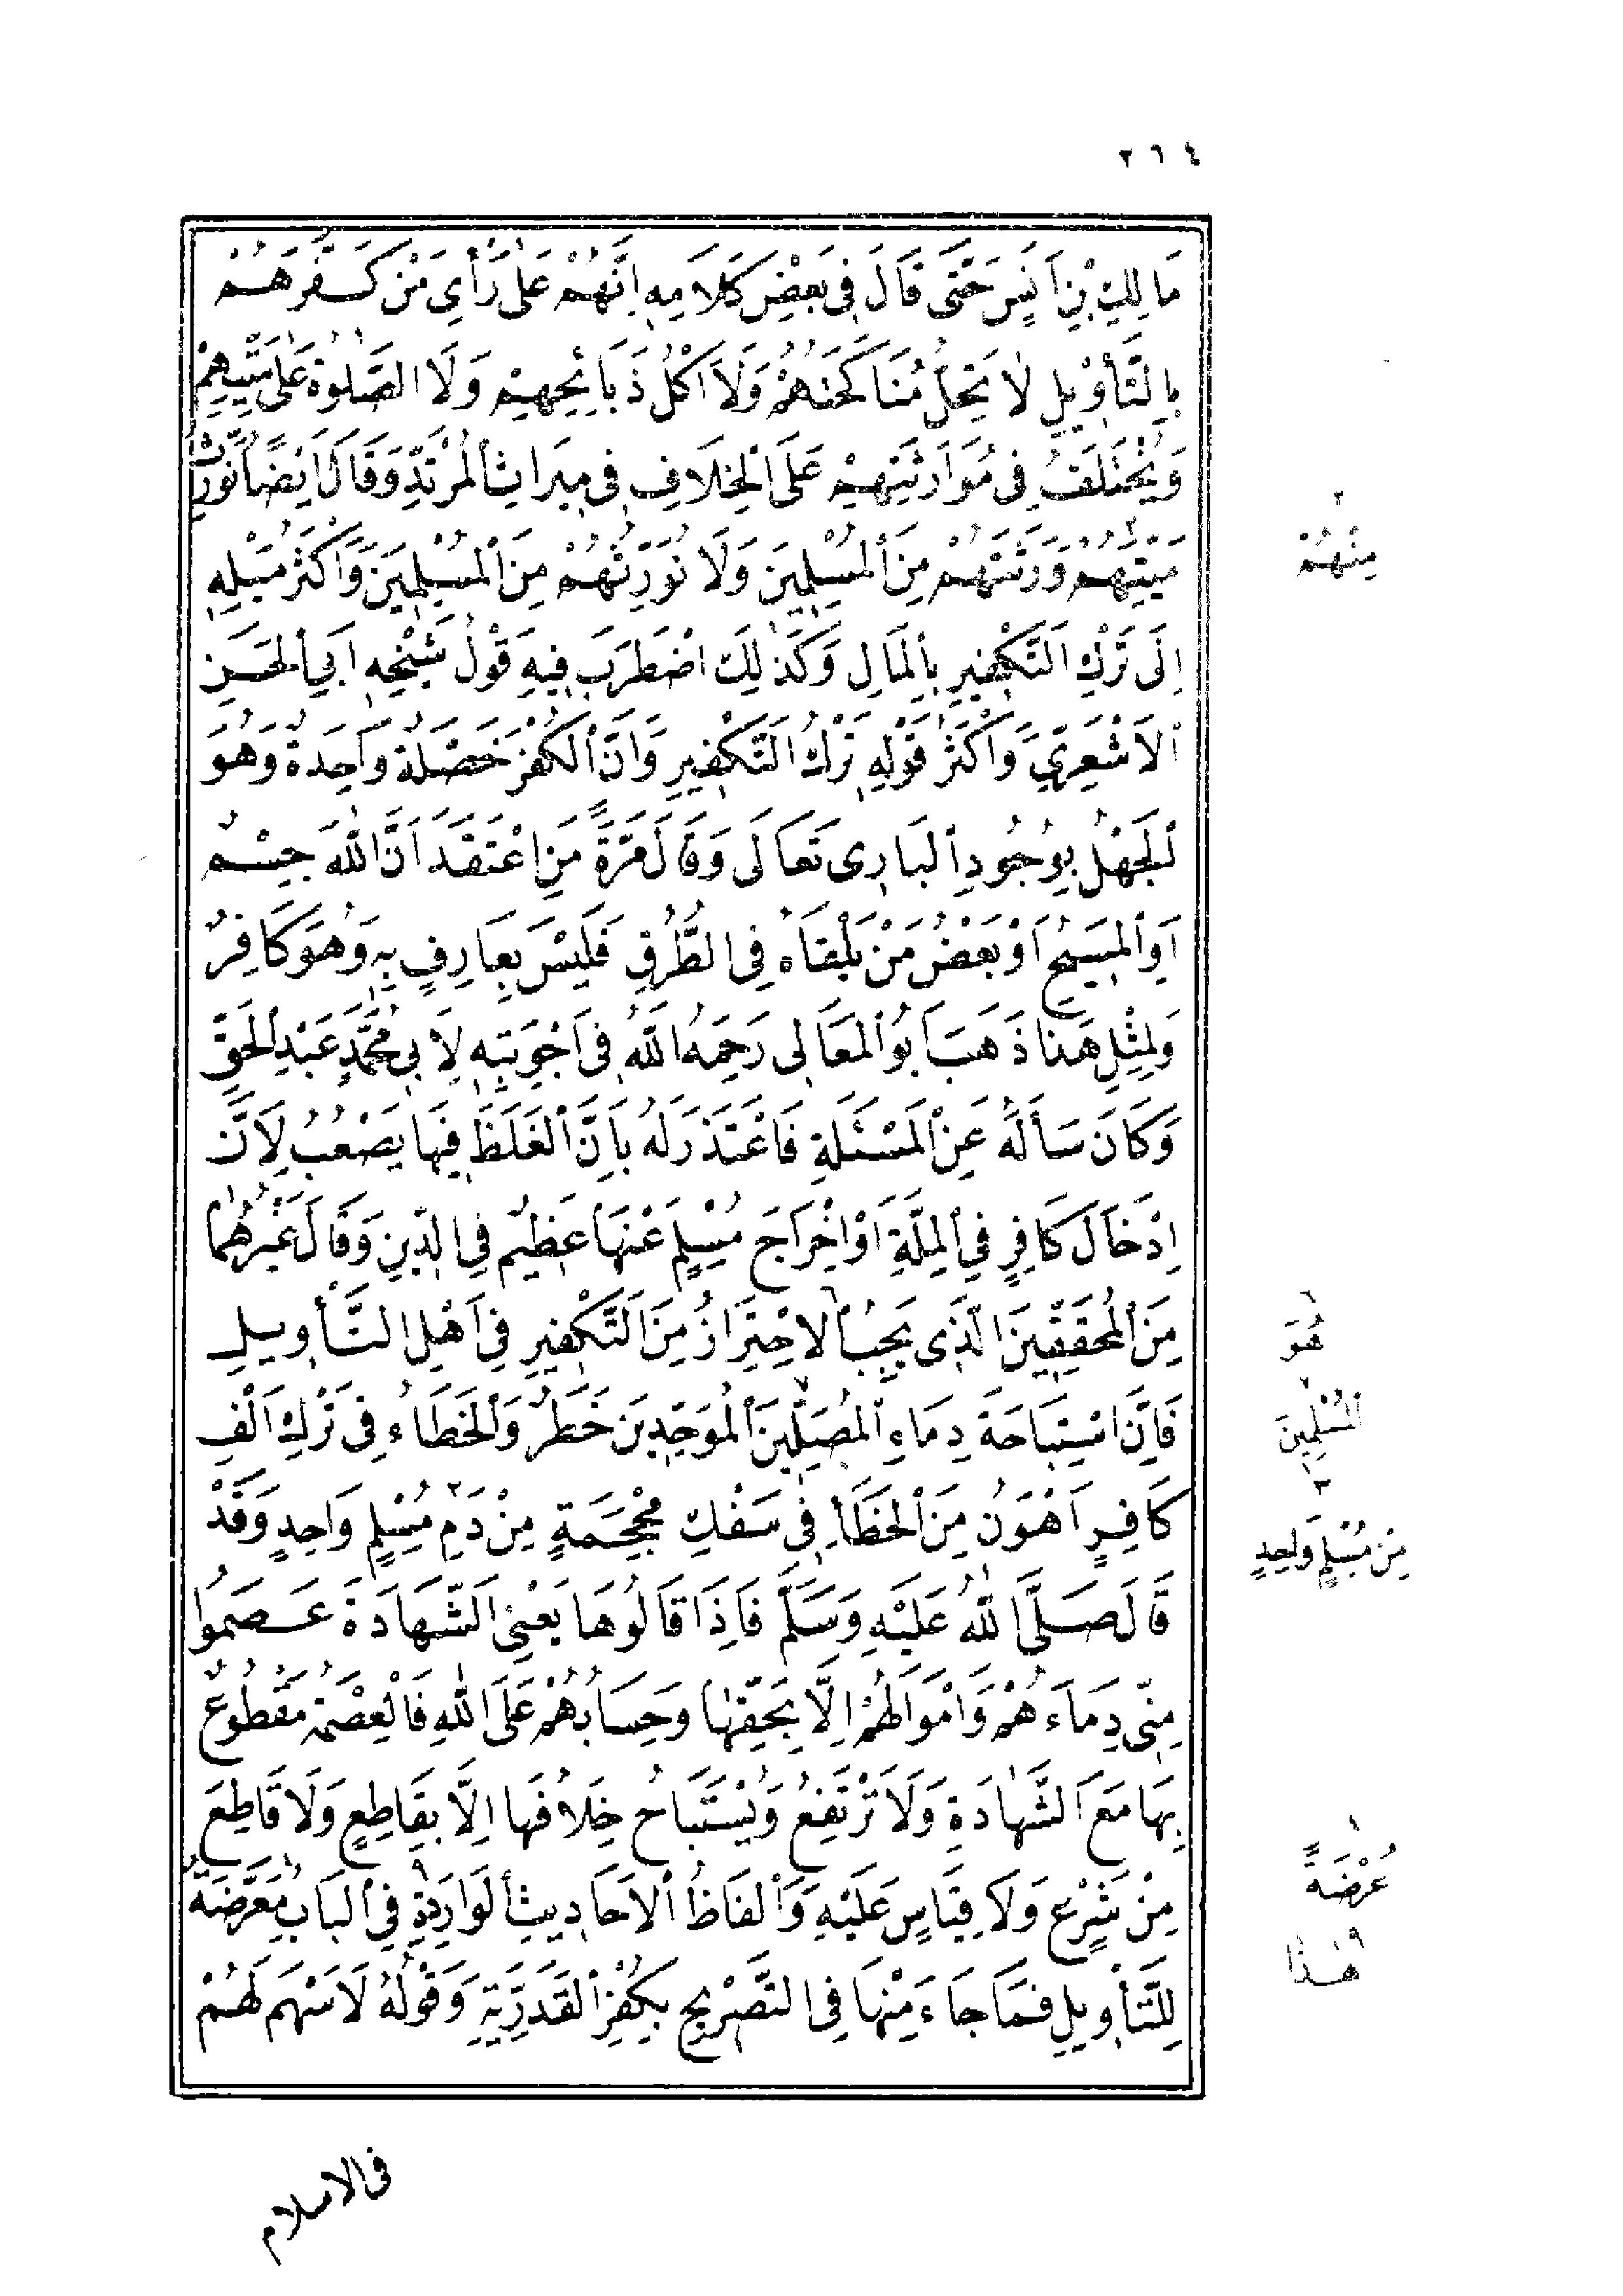 ٢٦٤
مَالِكِ بْنِ أَنَسٍ حَتَّى قَالَ فِى بَعْضِ كَلَامِهِ اِنَّهُمْ عَلٰى رَأْىِ مَنْ كَفَّرَهُمْ
بِالتَّأْوِيلِ لَا تَحِلُّ مُنَاكَحَتُهُمْ وَلَا اَكْلُ ذَبَائِحِهِمْ وَلَا الصَّلٰوةُ عَلٰى مَيِّتِهِمْ
وَيُخْتَلَفُ فِى مُوَارَثَتِهِمْ عَلَى الْخِلَافِ فِى مِيرَاثِ الْمُرْتَدِّ وَقَالَ اَيْضًا نُوَرِّثُ
مَيِّتَهُمْ وَرَثَتَهُمْ مِنَ الْمُسْلِمِينَ وَلَا نُوَرِّثُهُمْ مِنَ الْمُسْلِمِينَ وَاَكْثَرُ مَيْلِهِ
اِلَى تَرْكِ التَّكْفِيرِ بِالْمَالِ وَكَذٰلِكَ اضْطَرَبَ فِيهِ قَوْلُ شَيْخِهِ اَبِى الْحَسَنِ
الْاَشْعَرِيِّ وَاَكْثَرُ قَوْلِهِ تَرْكُ التَّكْفِيرِ وَاَنَّ الْكُفْرَ خَصْلَةٌ وَاحِدَةٌ وَهُوَ
الْجَهْلُ بِوُجُودِ الْبَارِى تَعَالَى وَقَالَ مَرَّةً مَنِ اعْتَقَدَ اَنَّ اللهَ جِسْمٌ
اَوِ الْمَسِيحُ اَوْ بَعْضُ مَنْ يَلْقَاهُ فِى الطُّرُقِ فَلَيْسَ بِعَارِفٍ بِهِ وَهُوَ كَافِرٌ
وَلِمِثْلِ هٰذَا ذَهَبَ اَبُو الْمَعَالِى رَحِمَهُ اللهُ فِى اَجْوِبَتِهِ لِاَبِى مُحَمَّدٍ عَبْدِ الْحَقِّ
وَكَانَ سَأَلَهُ عَنِ الْمَسْئَلَةِ فَاعْتَذَرَ لَهُ بِاَنَّ الْغَلَطَ فِيهَا يَصْعُبُ لِاَنَّ
اِدْخَالَ كَافِرٍ فِي الْمِلَّةِ اَوْ اِخْرَاجَ مُسْلِمٍ عَنْهَا عَظِيمٌ فِى الدِّينِ وَقَالَ غَيْرُهُمَا
مِنَ الْمُحَقِّقِينَ الَّذِى يَجِبُ الْاِحْتِرَازُ مِنَ التَّكْفِيرِ فِى اَهْلِ التَّأْوِيلِ
فَاِنَّ اسْتِبَاحَةَ دِمَاءِ الْمُصَلِّينَ الْمُوَحِّدِينَ خَطَرٌ وَالْخَطَاءُ فِى تَرْكِ اَلْفِ
كَافِرٍ اَهْوَنُ مِنَ الْخَطَأِ فِى سَفْكِ مِحْجَمَةٍ مِنْ دَمِ مُسْلِمٍ وَاحِدٍ وَقَدْ
قَالَ صَلَّى اللهُ عَلَيْهِ وَسَلَّمَ فَاِذَا قَالُوهَا يَعْنِى الشَّهَادَةَ عَصَمُوا
مِنِّى دِمَاءَهُمْ وَاَمْوَالَهُمْ اِلَّا بِحَقِّهَا وَحِسَابُهُمْ عَلَى اللهِ فَالْعِصْمَةُ مَقْطُوعٌ
بِهَا مَعَ الشَّهَادَةِ وَلَا تَرْتَفِعُ وَيُسْتَبَاحُ خِلَافُهَا اِلَّا بِقَاطِعٍ وَلَا قَاطِعَ
مِنْ شَرْعٍ وَلَا قِيَاسٍ عَلَيْهِ وَاَلْفَاظُ الْاَحَادِيثِ الْوَارِدَةِ فِى الْبَابِ مُعَرَّضَةٌ
لِلتَّأْوِيلِ فَمَا جَاءَ مِنْهَا فِى التَّصْرِيحِ بِكُفْرِ الْقَدَرِيَّةِ وَقَوْلُهُ لَا سَهْمَ لَهُمْ
٢
مِنْهُمْ
٦
هُوَ
٧
الْمُسْلِمِينَ
٣
مِنْ مُسْلِمٍ وَاحِدٍ
٨
عُرْضَةٌ
٩
هٰذَا
فى الاسلام